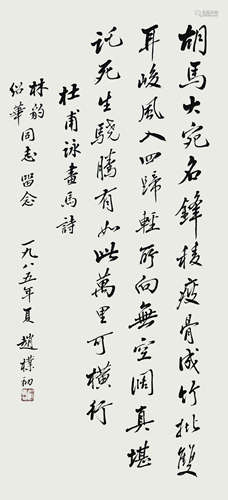 胡馬大宛名鋒稜瘦骨成竹批雙
耳峻風入四蹄輕所向無空闊真堪
託死生驍騰有如此萬里可橫行
杜甫詠畫馬詩
林豹
紹華同志留念
一九八五年夏趙樸初